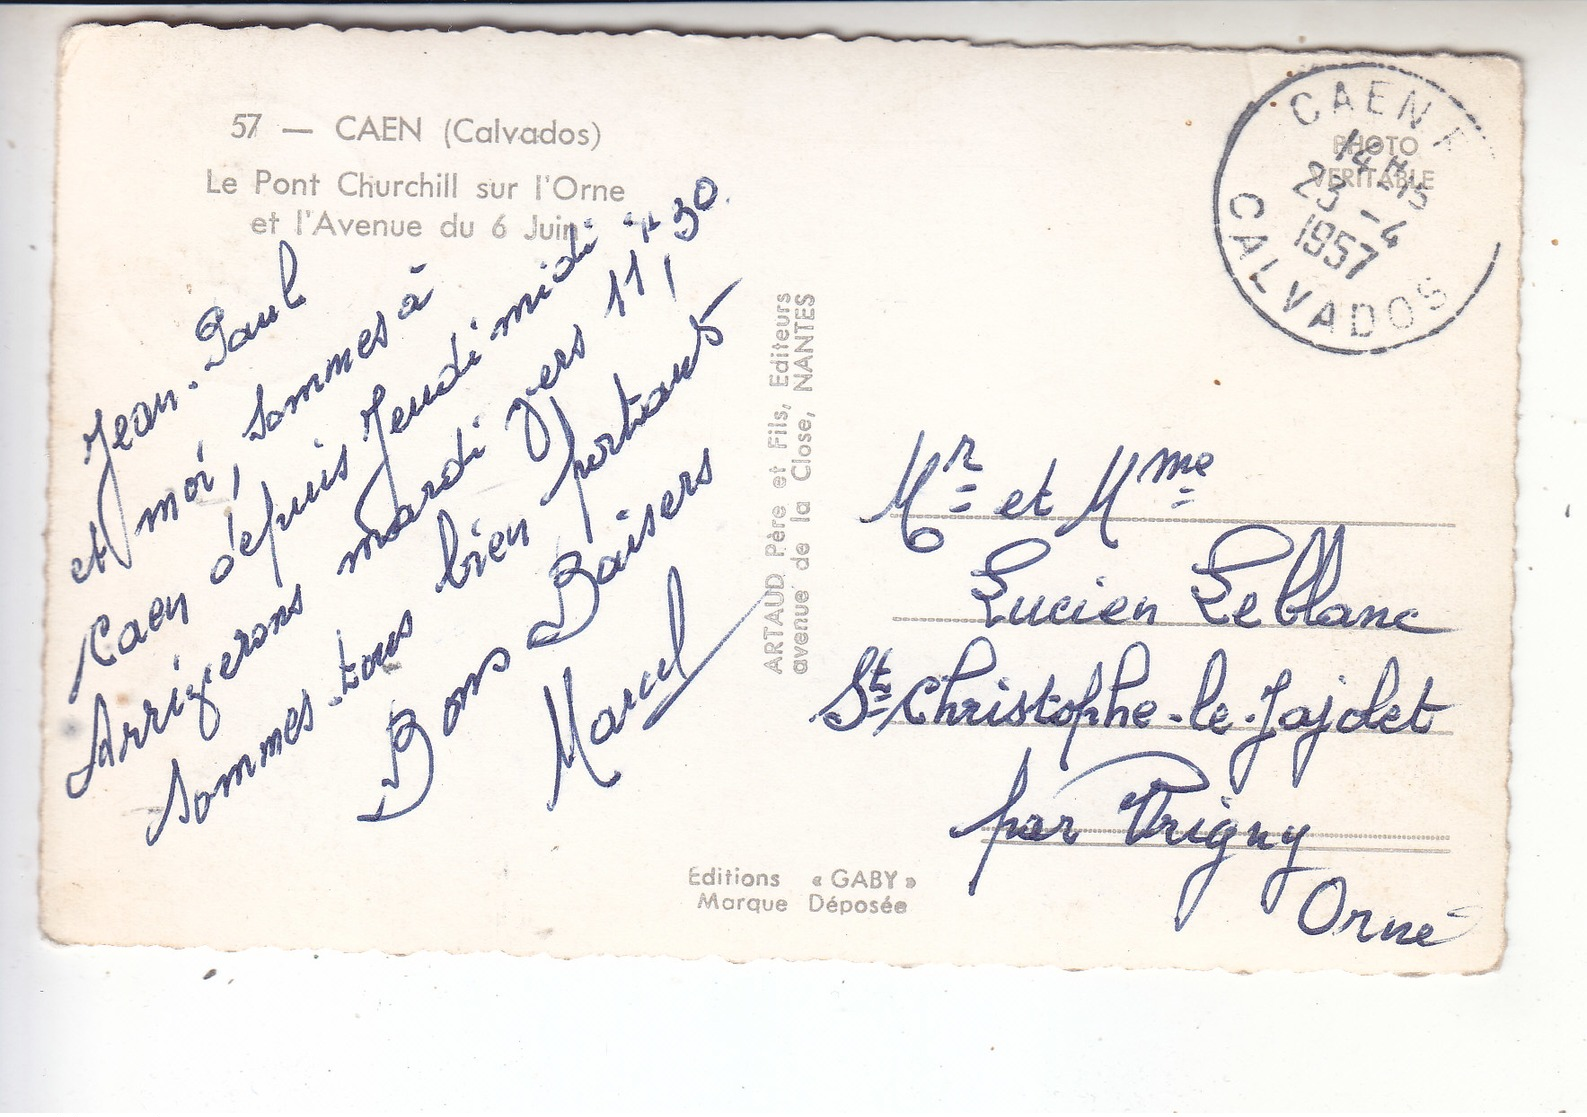 57 — CAEN (Calvados)
Le Pont Churchill sur l'Orne
et l'Avenue du 6 Juin
Jean-Paul
et moi, sommes à
Caen depuis Jeudi midi
Arriverons mardi vers 11,30.
sommes-tous bien portants
Bons Baisers
Marcel
ARTAUD Père et Fils, Editeurs
avenue de la Close, NANTES
Editions « GABY »
Marque Déposée
PHOTO
VERITABLE
CAEN
14H15
23 - 4
1957
CALVADOS
Mr et Mme
Lucien Leblanc
St Christophe-le-Jajolet
par Vrigny
Orne